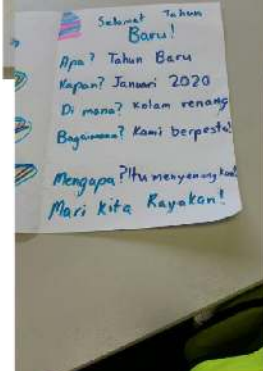 Selamat Tahun
Baru!
Apa? Tahun Baru
Kapan? Januari 2020
Di mana? Kolam renang
Bagaimana? Kami berpesta!
Mengapa? Itu menyenangkan!
Mari Kita Rayakan!